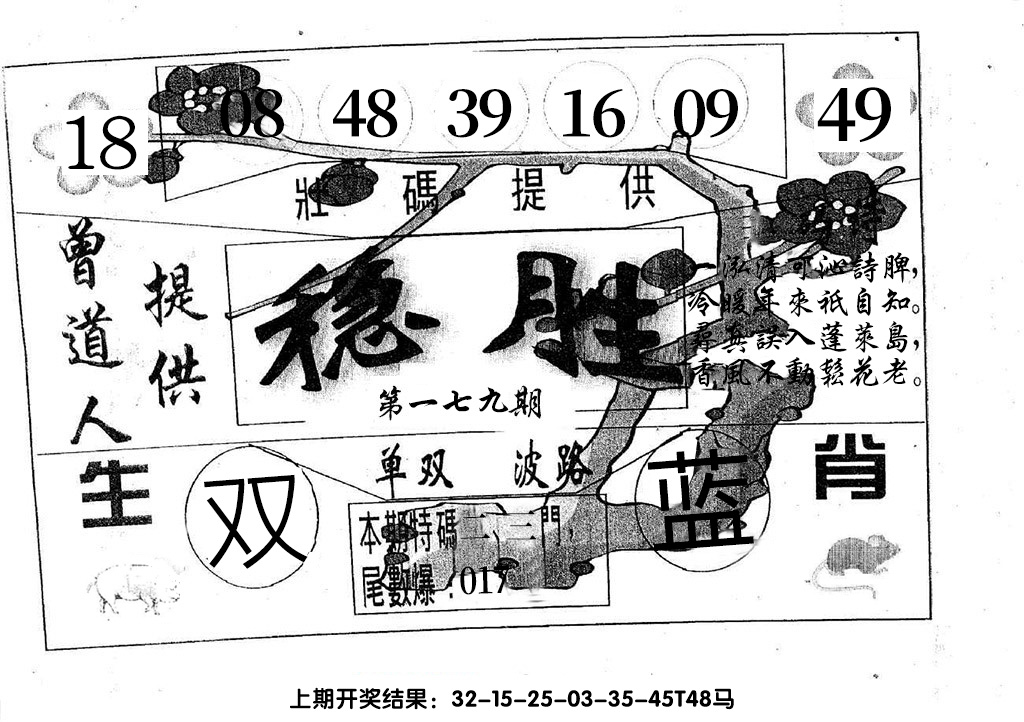 18 08 48 39 16 09 49
壯碼提供
曾道人
提供
稳胜
第一七九期
泓清可沁詩脾，
冷暖年來祇自知。
尋真誤入蓬萊島，
香風不動鬆花老。
单双 波路
生 肖
双 蓝
本期特碼二、三門，
尾數爆：017
上期开奖结果：32-15-25-03-35-45T48马